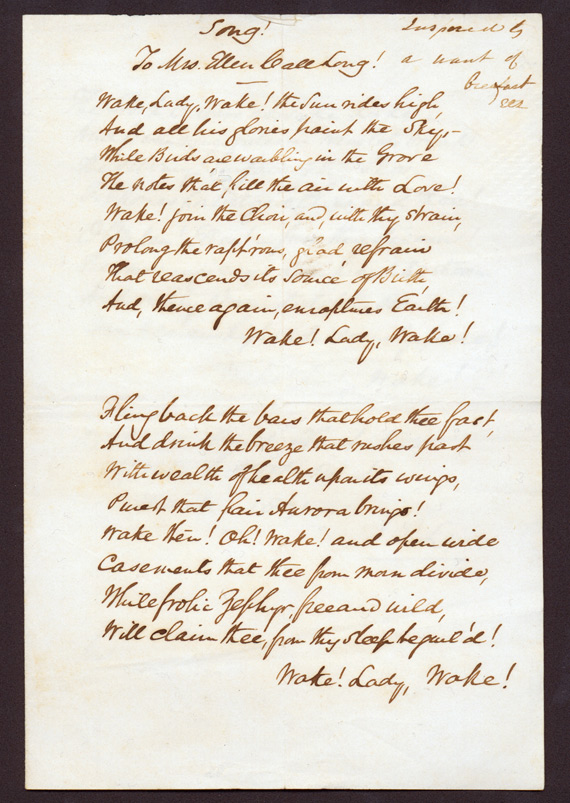 Song!
To Mrs. Ellen Call Long!
Inspired by
a want of
breakfast
Wake, Lady, Wake! the Sun rides high,
And all his glories paint the Sky,-
While Birds are warbling in the Grove
The notes that fill the air with Love!
Wake! join the Choir, and, with thy strain,
Prolong the rapt'rous, glad refrain
That reascends its Source of Birth,
And, thence again, enraptures Earth!
Wake! Lady, Wake!
Fling back the bars that hold thee fast,
And drink the breeze that rushes past
With wealth of health upon its wings,
Purest that fair Aurora brings!
Wake then! Oh! Wake! and open wide
Casements that thee from morn divide,
While frolic Zephyr, free and wild,
Will claim thee, from thy sleep beguil'd!
Wake! Lady, Wake!